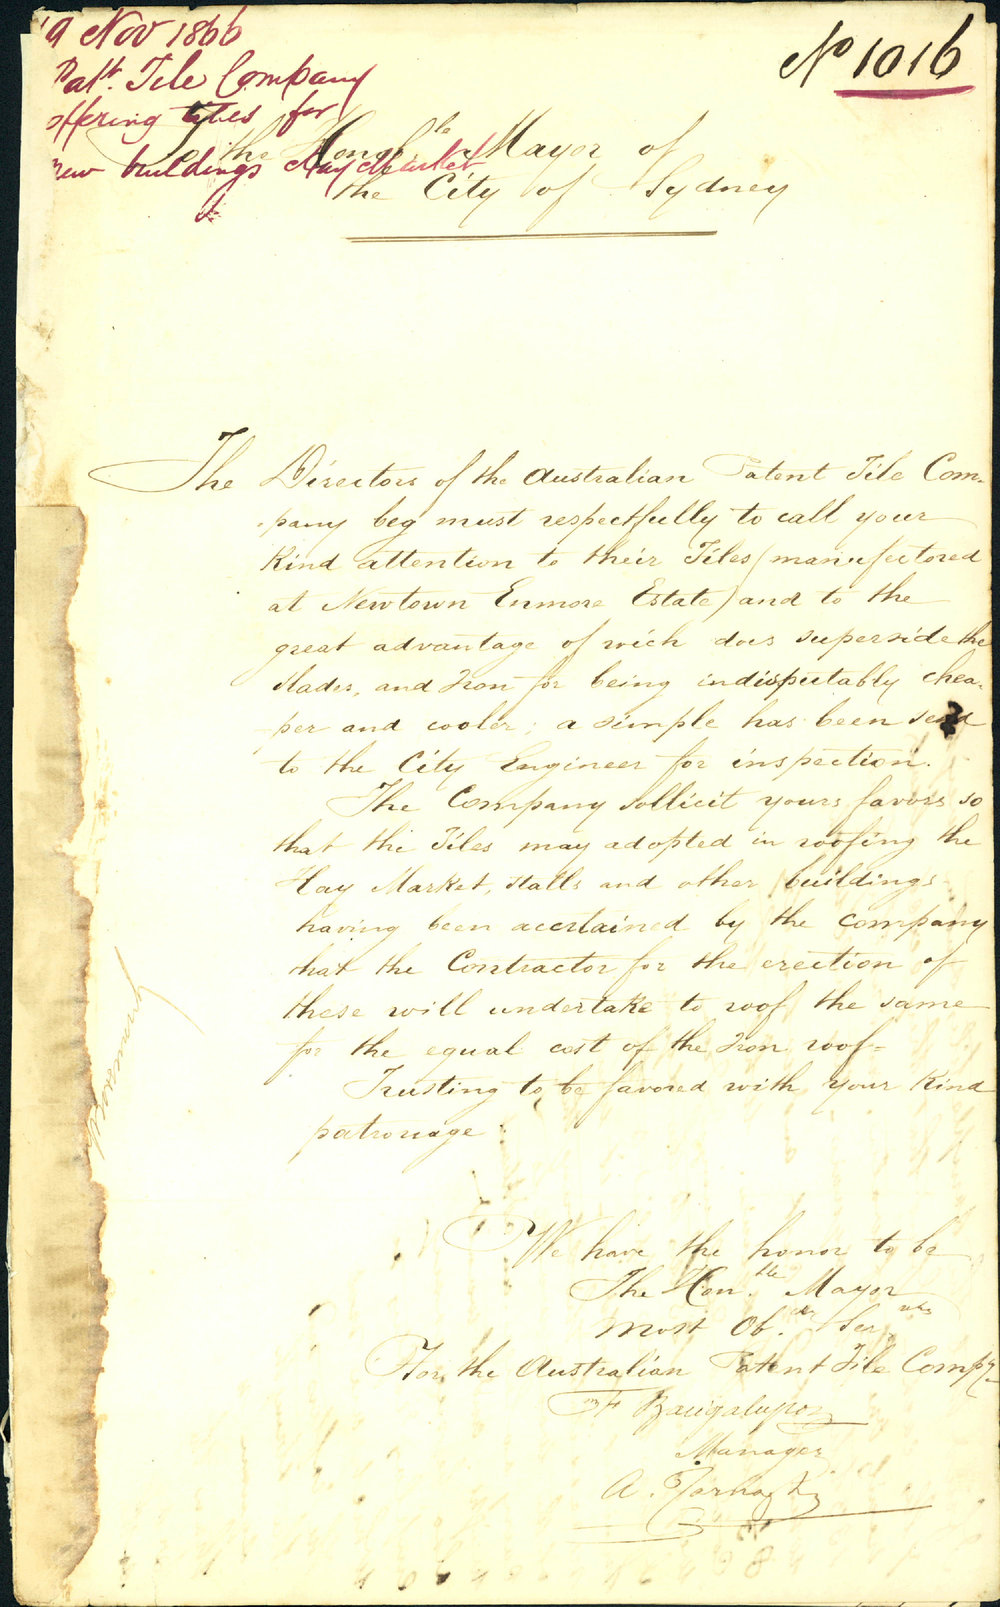 19 Nov 1866
Patt. Tile Company
offering tyles for
new buildings Hay Market
No 1016
To the Honoble Mayor of
the City of Sydney
The Directors of the Australian Patent Tile Com-
pany beg must respectfully to call your
Kind attention to their Tiles (manufectored
at Newtown Enmore Estate) and to the
great advantage of wich does superside the
slades, and Iron for being indisputably chea-
per and cooler; a simple has been send
to the City Engineer for inspection.
The Company sollicit yours favors so
that the Tiles may adopted in roofing the
Hay Market, stalls and other buildings
having been acertained by the company
that the Contractor for the erection of
these will undertake to roof the same
for the equal cost of the Iron roof=
Trusting to be favored with your Kind
patronage
We have the honor to be
The Hon.ble Mayor
most Ob. Ser.
For the Australian Patent Tile Compy.
Manager
A.